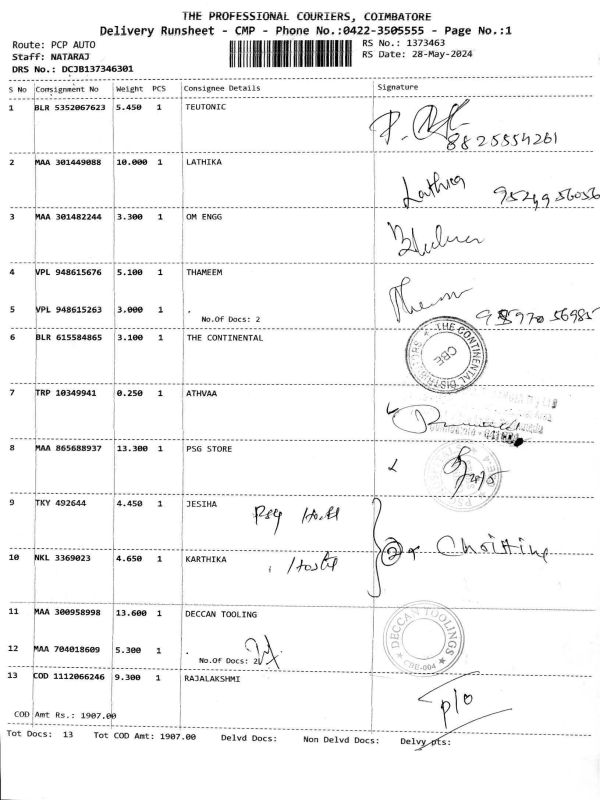 THE PROFESSIONAL COURIERS, COIMBATORE
Delivery Runsheet - CMP - Phone No.:0422-3505555 - Page No.:1
Route: PCP AUTO
RS No.: 1373463
Staff: NATARAJ
RS Date: 28-May-2024
DRS No.: DCJB137346301
S No Consignment No Weight PCS Consignee Details Signature
1 BLR 5352067623 5.450 1 TEUTONIC
8825554261
2 MAA 301449088 10.000 1 LATHIKA
Lathika
3 MAA 301482244 3.300 1 OM ENGG
4 VPL 948615676 5.100 1 THAMEEM
5 VPL 948615263 3.000 1 .
No.Of Docs: 2
6 BLR 615584865 3.100 1 THE CONTINENTAL
THE CONTINENTAL DISTRIBUTORS
CBE
7 TRP 10349941 0.250 1 ATHVAA
8 MAA 865688937 13.300 1 PSG STORE
9 TKY 492644 4.450 1 JESIHA
Psg Hostel
10 NKL 3369023 4.650 1 KARTHIKA
Hostel
11 MAA 300958998 13.600 1 DECCAN TOOLING
DECCAN TOOLINGS
CBE-004
12 MAA 704018609 5.300 1 .
No.Of Docs: 2
13 COD 1112066246 9.300 1 RAJALAKSHMI
p/o
COD Amt Rs.: 1907.00
Tot Docs: 13 Tot COD Amt: 1907.00 Delvd Docs: Non Delvd Docs: Delvy pts: